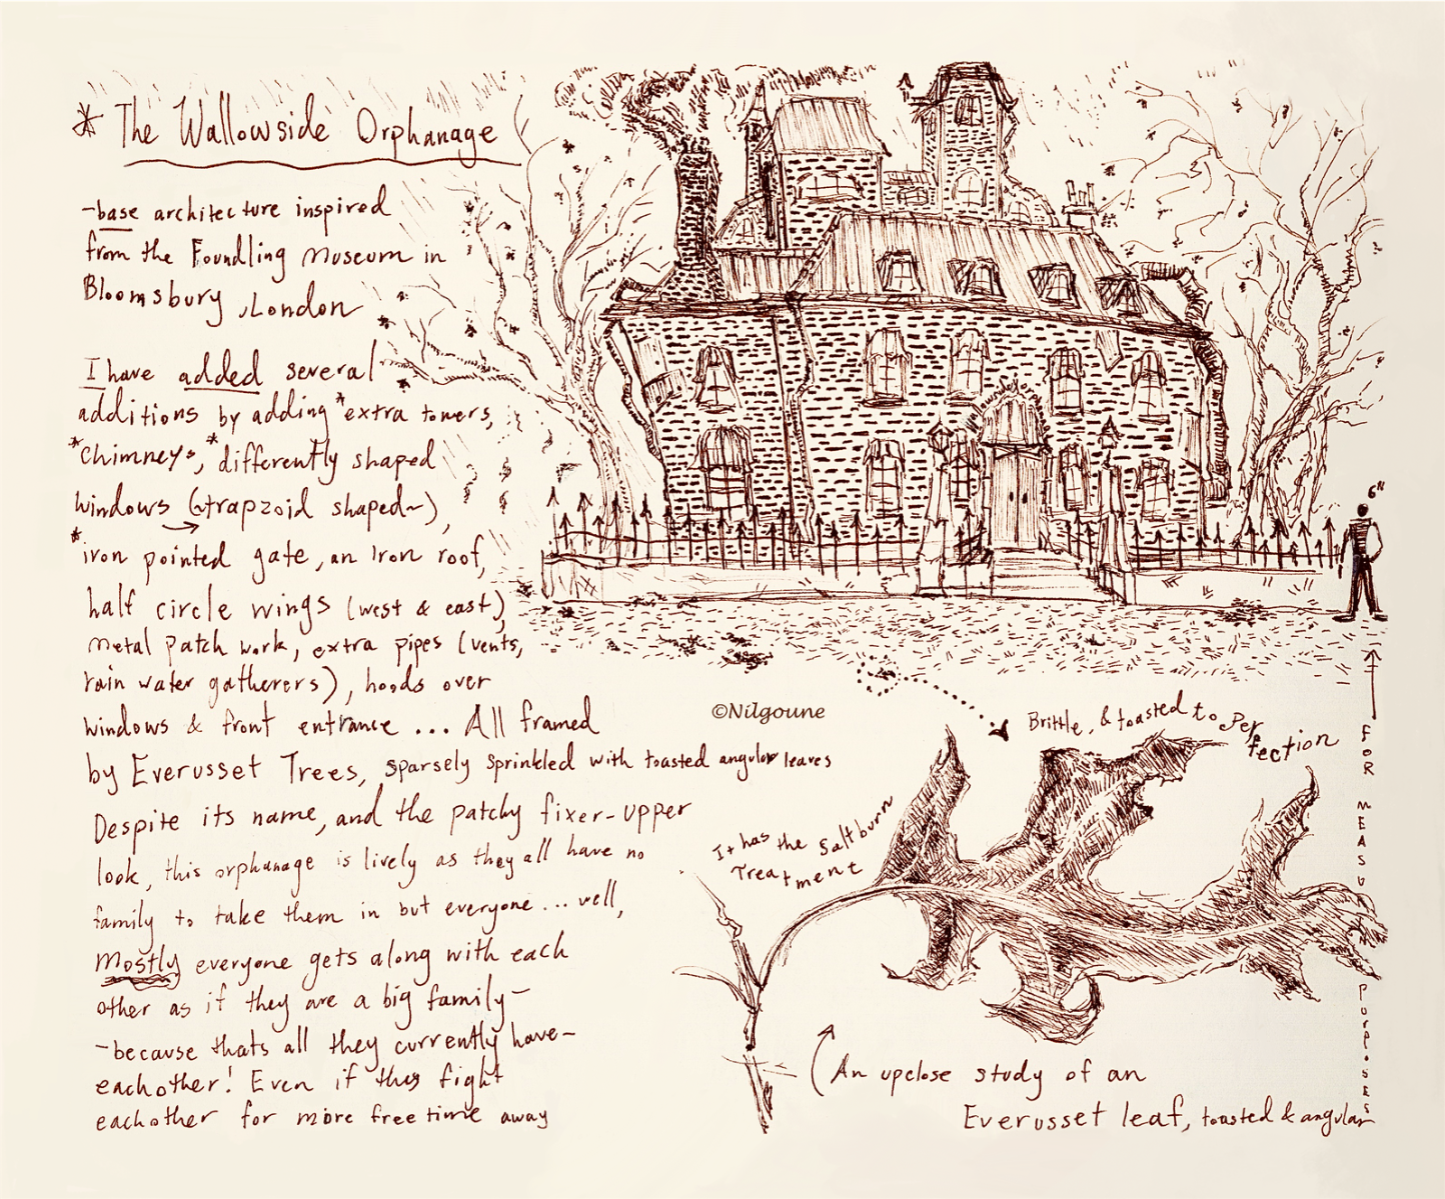 * The Wallowside Orphanage
-base architecture inspired
from the Foundling Museum in
Bloomsbury, London
I have added several
additions by adding *extra towers,
*chimneys*, differently shaped
windows (trapzoid shaped~),
*iron pointed gate, an Iron roof,
half circle wings (west & east),
metal patch work, extra pipes (vents,
rain water gatherers), hoods over
windows & front entrance ... All framed
by Everusset Trees, sparsely sprinkled with toasted angular leaves
Despite its name, and the patchy fixer-upper
look, this orphanage is lively as they all have no
family to take them in but everyone ... well,
Mostly everyone gets along with each
other as if they are a big family-
-because thats all they currently have-
eachother! Even if they fight
eachother for more free time away
6"
FOR MEASURING PURPOSES
©Nilgoune
Brittle, & toasted to Per
fection
It has the Saltburn
Treatment
An upclose study of an
Everusset leaf, toasted & angular